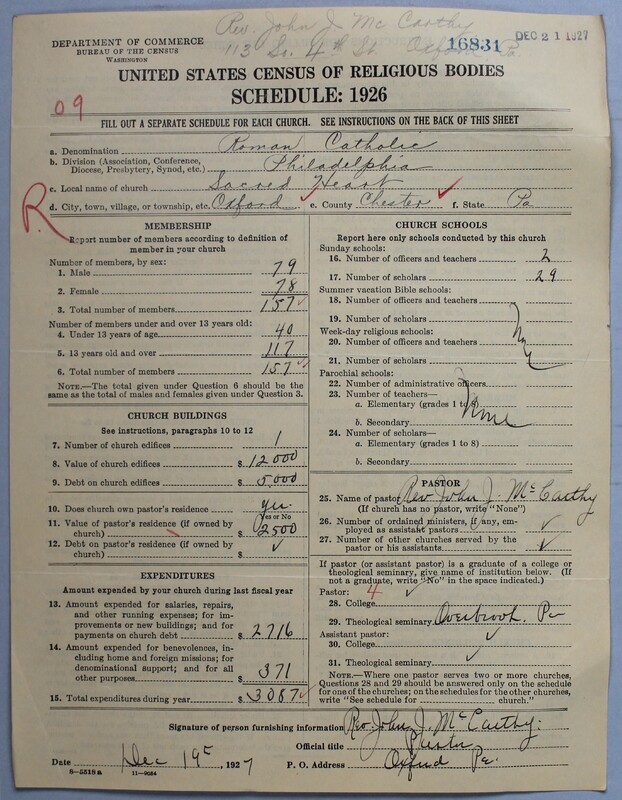 Rev. John J. McCarthy
113 So. 4th St. Oxford Pa.
16831
DEC 21 1927
DEPARTMENT OF COMMERCE
BUREAU OF THE CENSUS
WASHINGTON
UNITED STATES CENSUS OF RELIGIOUS BODIES
SCHEDULE: 1926
09
FILL OUT A SEPARATE SCHEDULE FOR EACH CHURCH. SEE INSTRUCTIONS ON THE BACK OF THIS SHEET
a. Denomination Roman Catholic
b. Division (Association, Conference, Diocese, Presbytery, Synod, etc.) Philadelphia
c. Local name of church Sacred Heart
d. City, town, village, or township, etc. Oxford e. County Chester f. State Pa
R
MEMBERSHIP
Report number of members according to definition of
member in your church
Number of members, by sex:
1. Male 79
2. Female 78
3. Total number of members 157
Number of members under and over 13 years old:
4. Under 13 years of age 40
5. 13 years old and over 117
6. Total number of members 157
NOTE.—The total given under Question 6 should be
same as the total of males and females given under Question 3.
CHURCH BUILDINGS
See instructions, paragraphs 10 to 12
7. Number of church edifices 1
8. Value of church edifices $ 12000
9. Debt on church edifices $ 5,000
10. Does church own pastor's residence? yes.
Yes or No
11. Value of pastor's residence (if owned by
church) $ 2500
12. Debt on pastor's residence (if owned by
church) $ ✓
EXPENDITURES
Amount expended by your church during last fiscal year
13. Amount expended for salaries, repairs,
and other running expenses; for im-
provements or new buildings; and for
payments on church debt $ 2716
14. Amount expended for benevolences, in-
cluding home and foreign missions; for
denominational support; and for all
other purposes $ 371
15. Total expenditures during year $ 3087
CHURCH SCHOOLS
Report here only schools conducted by this church
Sunday schools:
16. Number of officers and teachers 2
17. Number of scholars 29
Summer vacation Bible schools:
18. Number of officers and teachers
19. Number of scholars
Week-day religious schools:
20. Number of officers and teachers
21. Number of scholars
Parochial schools:
22. Number of administrative officers
23. Number of teachers—
a. Elementary (grades 1 to 8)
None
b. Secondary
24. Number of scholars—
a. Elementary (grades 1 to 8)
b. Secondary
PASTOR
25. Name of pastor Rev. John J. McCarthy
(If church has no pastor, write "None")
26. Number of ordained ministers, if any, em-
ployed as assistant pastors ✓
27. Number of other churches served by the
pastor or his assistants ✓
If pastor (or assistant pastor) is a graduate of a college or
theological seminary, give name of institution below. (If
not a graduate, write "No" in the space indicated.)
Pastor: 4
28. College ✓
29. Theological seminary Overbrook. Pa
Assistant pastor:
30. College ✓
31. Theological seminary ✓
NOTE.—Where one pastor serves two or more churches,
Questions 28 and 29 should be answered only on the schedule
for one of the churches; on the schedules for the other churches,
write "See schedule for church."
Signature of person furnishing information Rev. John J. McCarthy.
Official title Pastor
Date Dec 19th, 1927 P. O. Address Oxford Pa.
8—5518a 11—9084